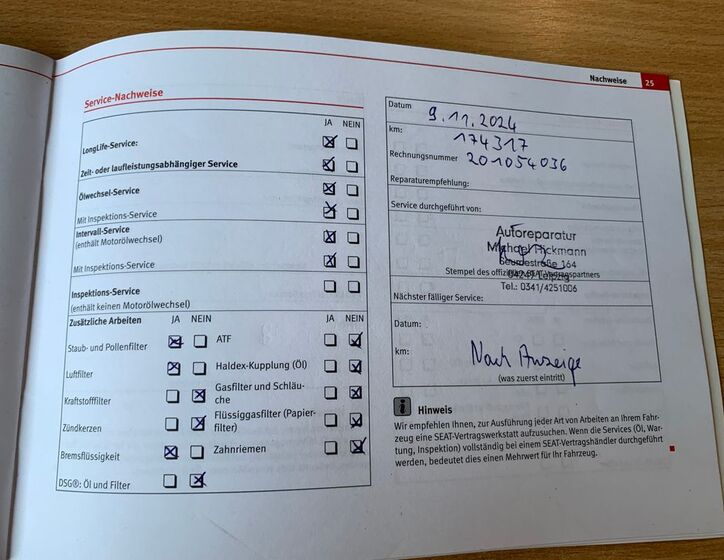 Nachweise 25
Service-Nachweise
JA NEIN
LongLife-Service:
Zeit- oder laufleistungsabhängiger Service
Ölwechsel-Service
Mit Inspektions-Service
Intervall-Service
(enthält Motorölwechsel)
Mit Inspektions-Service
Inspektions-Service
(enthält keinen Motorölwechsel)
Zusätzliche Arbeiten JA NEIN JA NEIN
Staub- und Pollenfilter ATF
Luftfilter Haldex-Kupplung (Öl)
Kraftstofffilter Gasfilter und Schläu-
che
Zündkerzen Flüssiggasfilter (Papier-
filter)
Bremsflüssigkeit Zahnriemen
DSG®: Öl und Filter
Datum 9.11.2024
km: 174317
Rechnungsnummer 201054036
Reparaturempfehlung:
Service durchgeführt von:
Autoreparatur
Michael Hickmann
164
Stempel des offiziellen SEAT-Vertragspartners
Leipzig
Tel.: 0341/4251006
Nächster fälliger Service:
Datum:
km: Nach Anzeige
(was zuerst eintritt)
i Hinweis
Wir empfehlen Ihnen, zur Ausführung jeder Art von Arbeiten an Ihrem Fahr-
zeug eine SEAT-Vertragswerkstatt aufzusuchen. Wenn die Services (Öl, War-
tung, Inspektion) vollständig bei einem SEAT-Vertragshändler durchgeführt
werden, bedeutet dies einen Mehrwert für Ihr Fahrzeug.